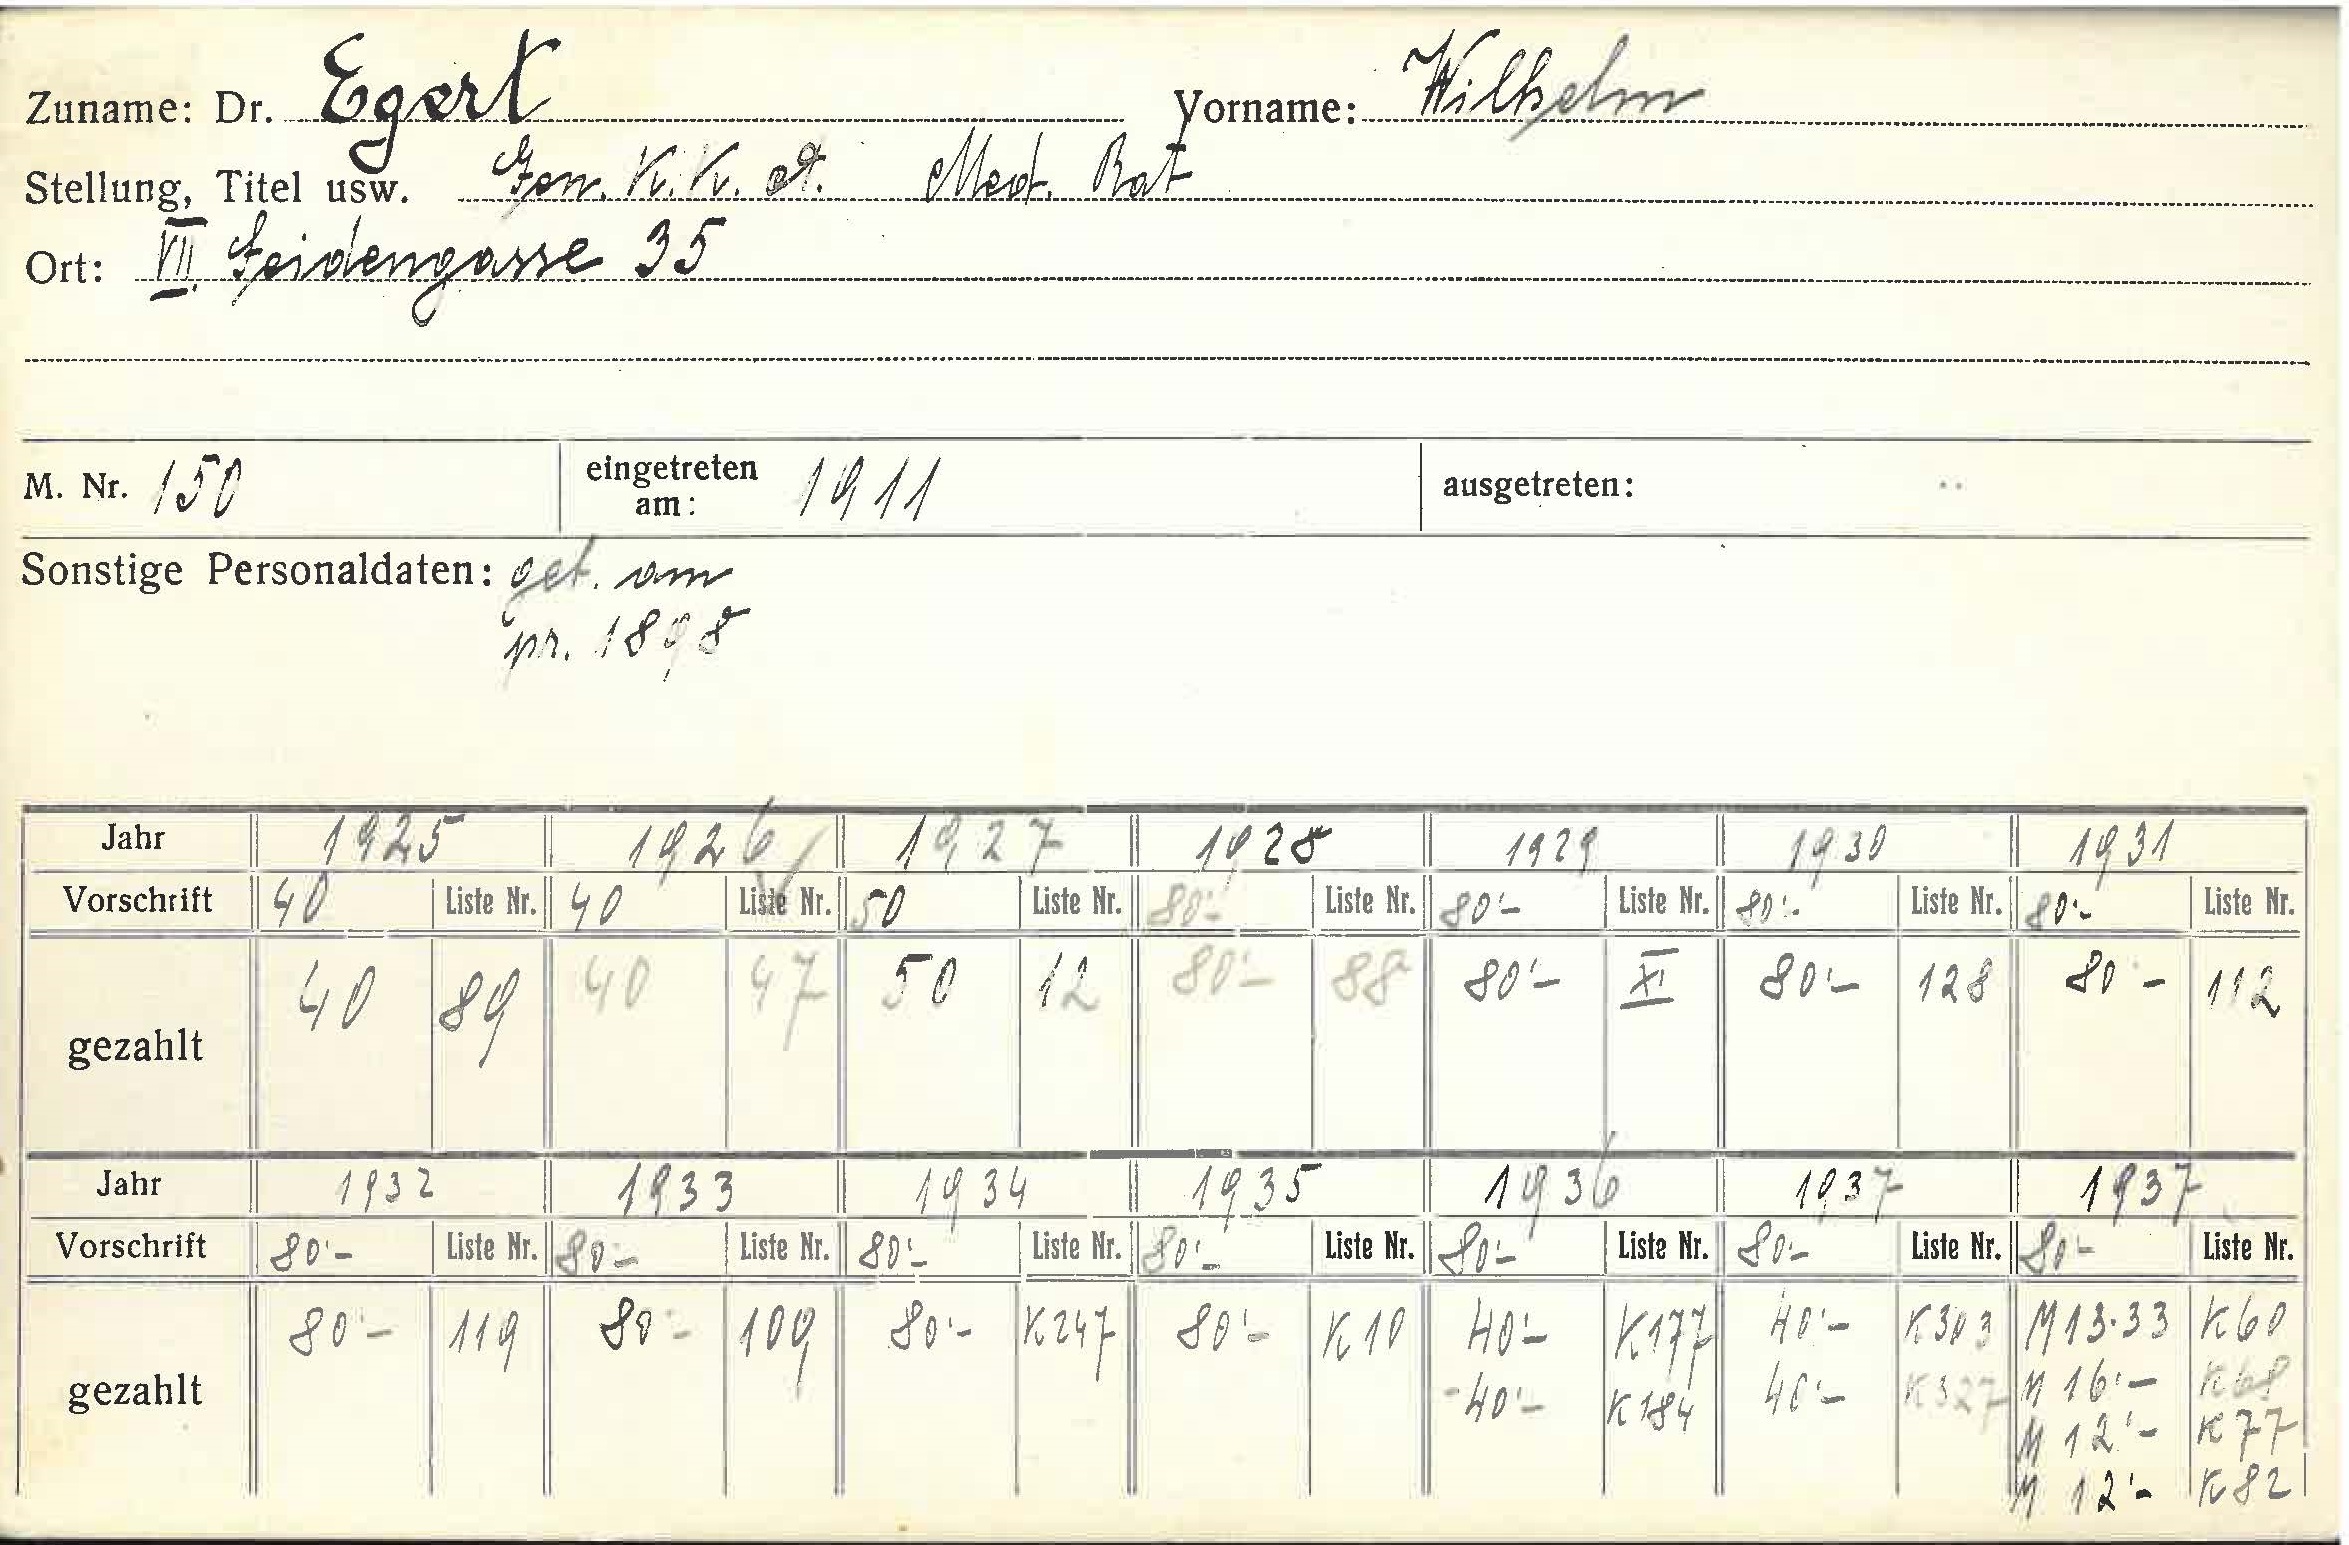 Zuname: Dr. Egert Vorname: Wilhelm
Stellung, Titel usw. Gen. K. K. A. Med. Rat
Ort: VII. Seidengasse 35
M. Nr. 150 eingetreten am: 1911 ausgetreten:
Sonstige Personaldaten: geb. am
pr. 1898
Jahr 1925 1926 1927 1928 1929 1930 1931
Vorschrift 40 Liste Nr. 40 Liste Nr. 50 Liste Nr. 80'- Liste Nr. 80'- Liste Nr. 80'- Liste Nr. 80'- Liste Nr.
gezahlt 40 89 40 47 50 12 80'- 88 80'- XI 80'- 128 80'- 112
Jahr 1932 1933 1934 1935 1936 1937 1937
Vorschrift 80'- Liste Nr. 80'- Liste Nr. 80'- Liste Nr. 80'- Liste Nr. 80'- Liste Nr. 80'- Liste Nr. 80'- Liste Nr.
gezahlt 80'- 119 80'- 109 80'- K247 80'- K10 40'- K177 40'- K303 M13·33 K60
40'- K184 40'- K327 M 16'- K68
M 12'- K77
M 12'- K82